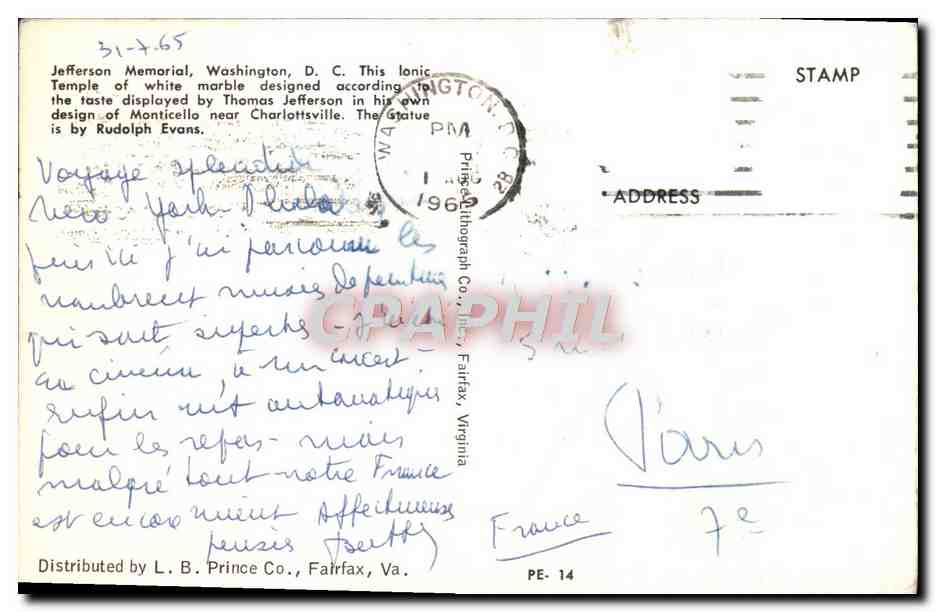 31-7-65
Jefferson Memorial, Washington, D. C. This Ionic
Temple of white marble designed according to
the taste displayed by Thomas Jefferson in his own
design of Monticello near Charlottsville. The Statue
is by Rudolph Evans.
WASHINGTON, D.C.
PM
1
STAMP
ADDRESS
Voyage splendide
New-York-
j'ai parcouru les
musées de peinture
qui sont superbes -
au cinéma, à un concert -
enfin automatiques
pour les repas - mais
malgré tout notre France
est encore mieux Affectueuses
pensées
Prince Lithograph Co., Inc., Fairfax, Virginia
CPAPHIL
Paris
7e
France
Distributed by L. B. Prince Co., Fairfax, Va.
PE- 14